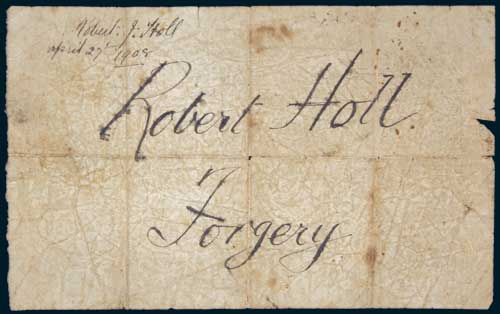 Robert J. Holl
april 27 1908
Robert Holl.
Forgery